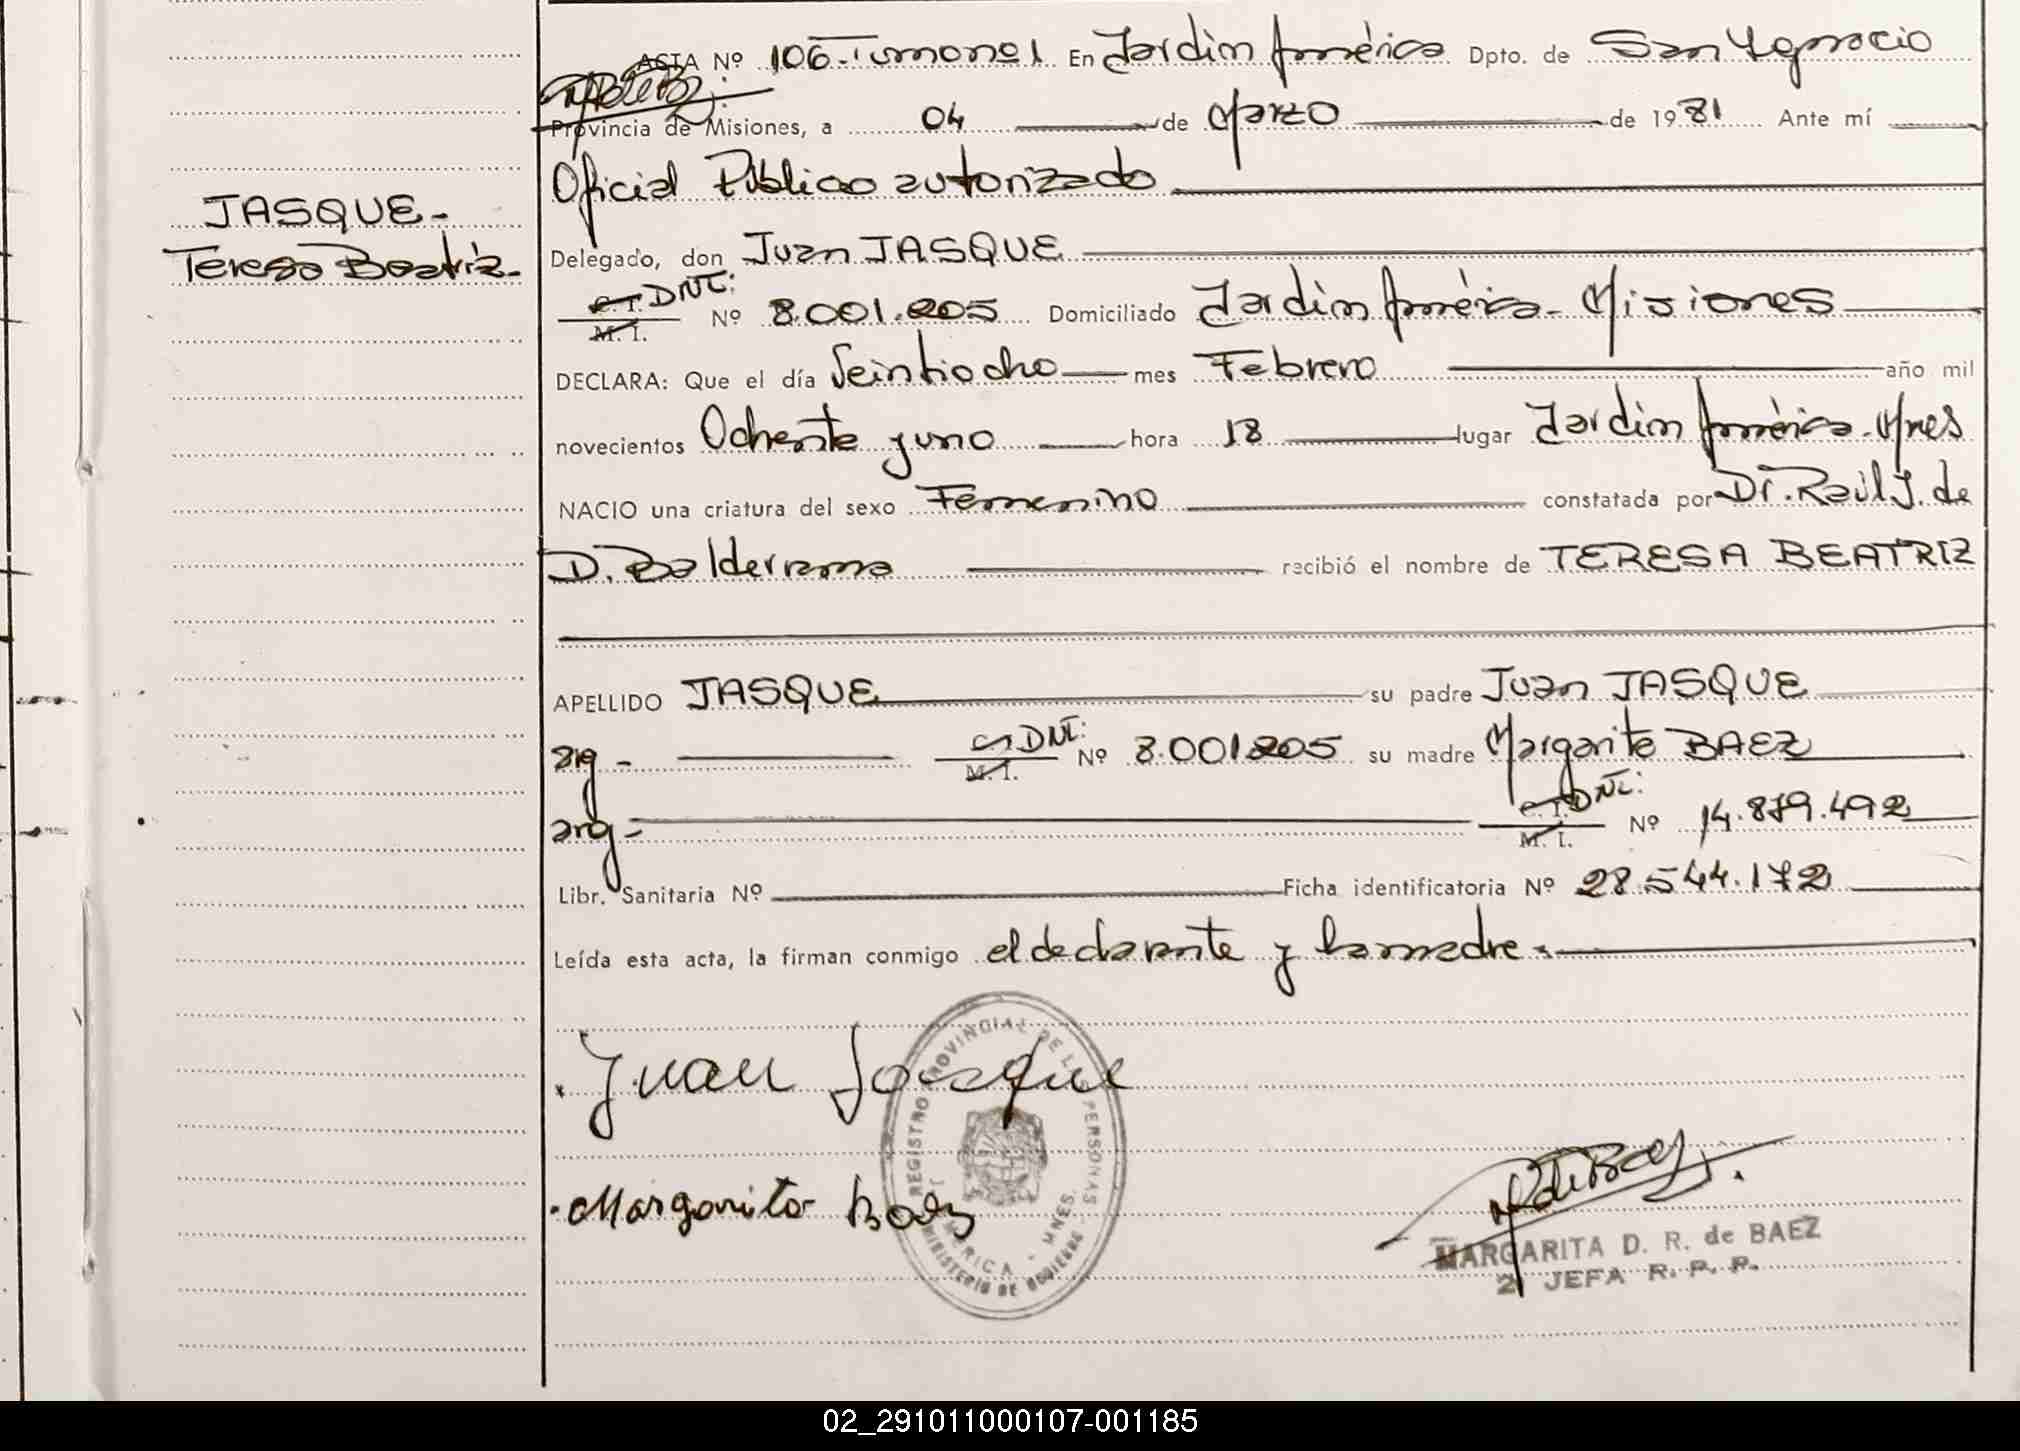 ACTA Nº 106-Tomo nº 1 En Jardín América Dpto. de San Ygnacio
Provincia de Misiones, a 04 de Marzo de 1981 Ante mí
Oficial Público autorizado
JASQUE-
Teresa Beatriz-
Delegado, don Juan JASQUE
C. I. DNI:
M. I. Nº 8.001.205 Domiciliado Jardín América- Misiones
DECLARA: Que el día Veintiocho mes Febrero año mil
novecientos Ochenta y uno hora 18 lugar Jardín América-Mnes
NACIO una criatura del sexo Femenino constatada por Dr. Raúl J. de
D. Balderrama recibió el nombre de TERESA BEATRIZ
APELLIDO JASQUE su padre Juan JASQUE
arg - DNI:
M. I. Nº 8.001.205 su madre Margarita BAEZ
arg - C. I. DNI:
M. I. Nº 14.879.492
Libr. Sanitaria Nº Ficha identificatoria Nº 28.544.172
Leída esta acta, la firman conmigo el declarante y la madre.-
Juan Jasque
Margarita Baez
REGISTRO PROVINCIAL DE LAS PERSONAS
MINISTERIO DE GOBIERNO
MERICA - MNES.
MARGARITA D. R. de BAEZ
2ª JEFA R. P. P.
02_291011000107-001185